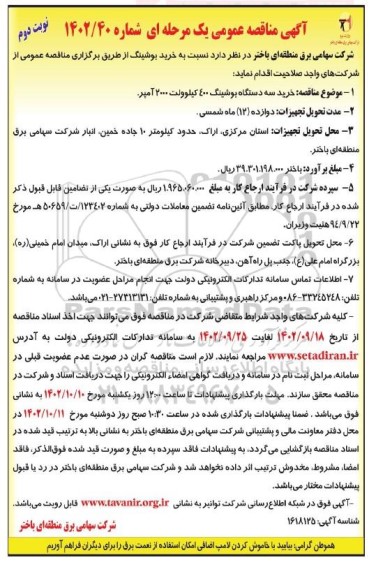 نوبت دوم
آگهی مناقصه عمومی یک مرحله ای شماره ۱۴۰۲/۴۰
شرکت سهامی برق منطقه‌ای باختر در نظر دارد نسبت به خرید بوشینگ از طریق برگزاری مناقصه عمومی از
شرکت‌های واجد صلاحیت اقدام نماید:
۱- موضوع مناقصه: خرید سه دستگاه بوشینگ ۴۰۰ کیلوولت ۲۰۰۰ آمپر.
۲- مدت تحویل تجهیزات: دوازده (۱۲) ماه شمسی.
۳- محل تحویل تجهیزات: استان مرکزی، اراک، حدود کیلومتر ۱۰ جاده خمین، انبار شرکت سهامی برق
منطقه‌ای باختر.
۴- مبلغ برآورد: باختر ۳۹.۳۰۱.۱۹۸.۰۰۰ ریال.
۵- سپرده شرکت در فرآیند ارجاع کار به مبلغ ۱.۹۶۵.۰۶۰.۰۰۰ ریال به صورت یکی از تضامین قابل قبول ذکر
شده در فرآیند ارجاع کار، مطابق آئین‌نامه تضمین معاملات دولتی به شماره ۱۲۳۴۰۲/ت/۵۰۶۵۹هـ مورخ
۹۴/۹/۲۲ هیئت وزیران.
۶- محل تحویل پاکت تضمین شرکت در فرآیند ارجاع کار فوق به نشانی اراک، میدان امام خمینی(ره)،
بزرگراه امام علی(ع)، جنب پل راه‌آهن، دبیرخانه شرکت برق منطقه‌ای باختر.
۷- اطلاعات تماس سامانه تدارکات الکترونیکی دولت جهت انجام مراحل عضویت در سامانه به شماره
تلفن: ۳۳۲۴۵۲۴۸-۰۸۶ و مرکز راهبری و پشتیبانی به شماره تلفن: ۲۷۳۱۳۱۳۱-۰۲۱ می‌باشد.
- کلیه شرکت‌های واجد شرایط متقاضی شرکت در مناقصه فوق می‌توانند جهت اخذ اسناد مناقصه
از تاریخ ۱۴۰۲/۰۹/۱۸ لغایت ۱۴۰۲/۰۹/۲۵ به سامانه تدارکات الکترونیکی دولت به آدرس
www.setadiran.ir مراجعه نمایند. لازم است مناقصه گران در صورت عدم عضویت قبلی در
سامانه، مراحل ثبت نام در سامانه و دریافت گواهی امضاء الکترونیکی را جهت دریافت اسناد و شرکت در
مناقصه محقق سازند. مهلت بارگذاری پیشنهادات تا ساعت ۱۲:۰۰ روز یکشنبه مورخ ۱۴۰۲/۱۰/۱۰ به نشانی
فوق می‌باشد. ضمنا پیشنهادات بارگذاری شده در ساعت ۱۰:۳۰ صبح روز دوشنبه مورخ ۱۴۰۲/۱۰/۱۱ در
محل دفتر معاونت مالی و پشتیبانی شرکت سهامی برق منطقه‌ای باختر به نشانی بالا به ترتیب قید شده در
اسناد مناقصه بازگشایی می‌گردد. به پیشنهادات فاقد سپرده به مبلغ و صورت قید شده فوق‌الذکر، فاقد
امضا، مشروط، مخدوش ترتیب اثر داده نخواهد شد و شرکت سهامی برق منطقه‌ای باختر در رد یا قبول
پیشنهادات مختار می‌باشد.
-آگهی فوق در شبکه اطلاع‌رسانی شرکت توانیر به نشانی www.tavanir.org.ir قابل رویت می‌باشد.
شناسه آگهی: ۱۶۱۸۱۲۵
شرکت سهامی برق منطقه‌ای باختر
هموطن گرامی: بیایید با خاموش کردن لامپ اضافی امکان استفاده از نعمت برق را برای دیگران فراهم آوریم